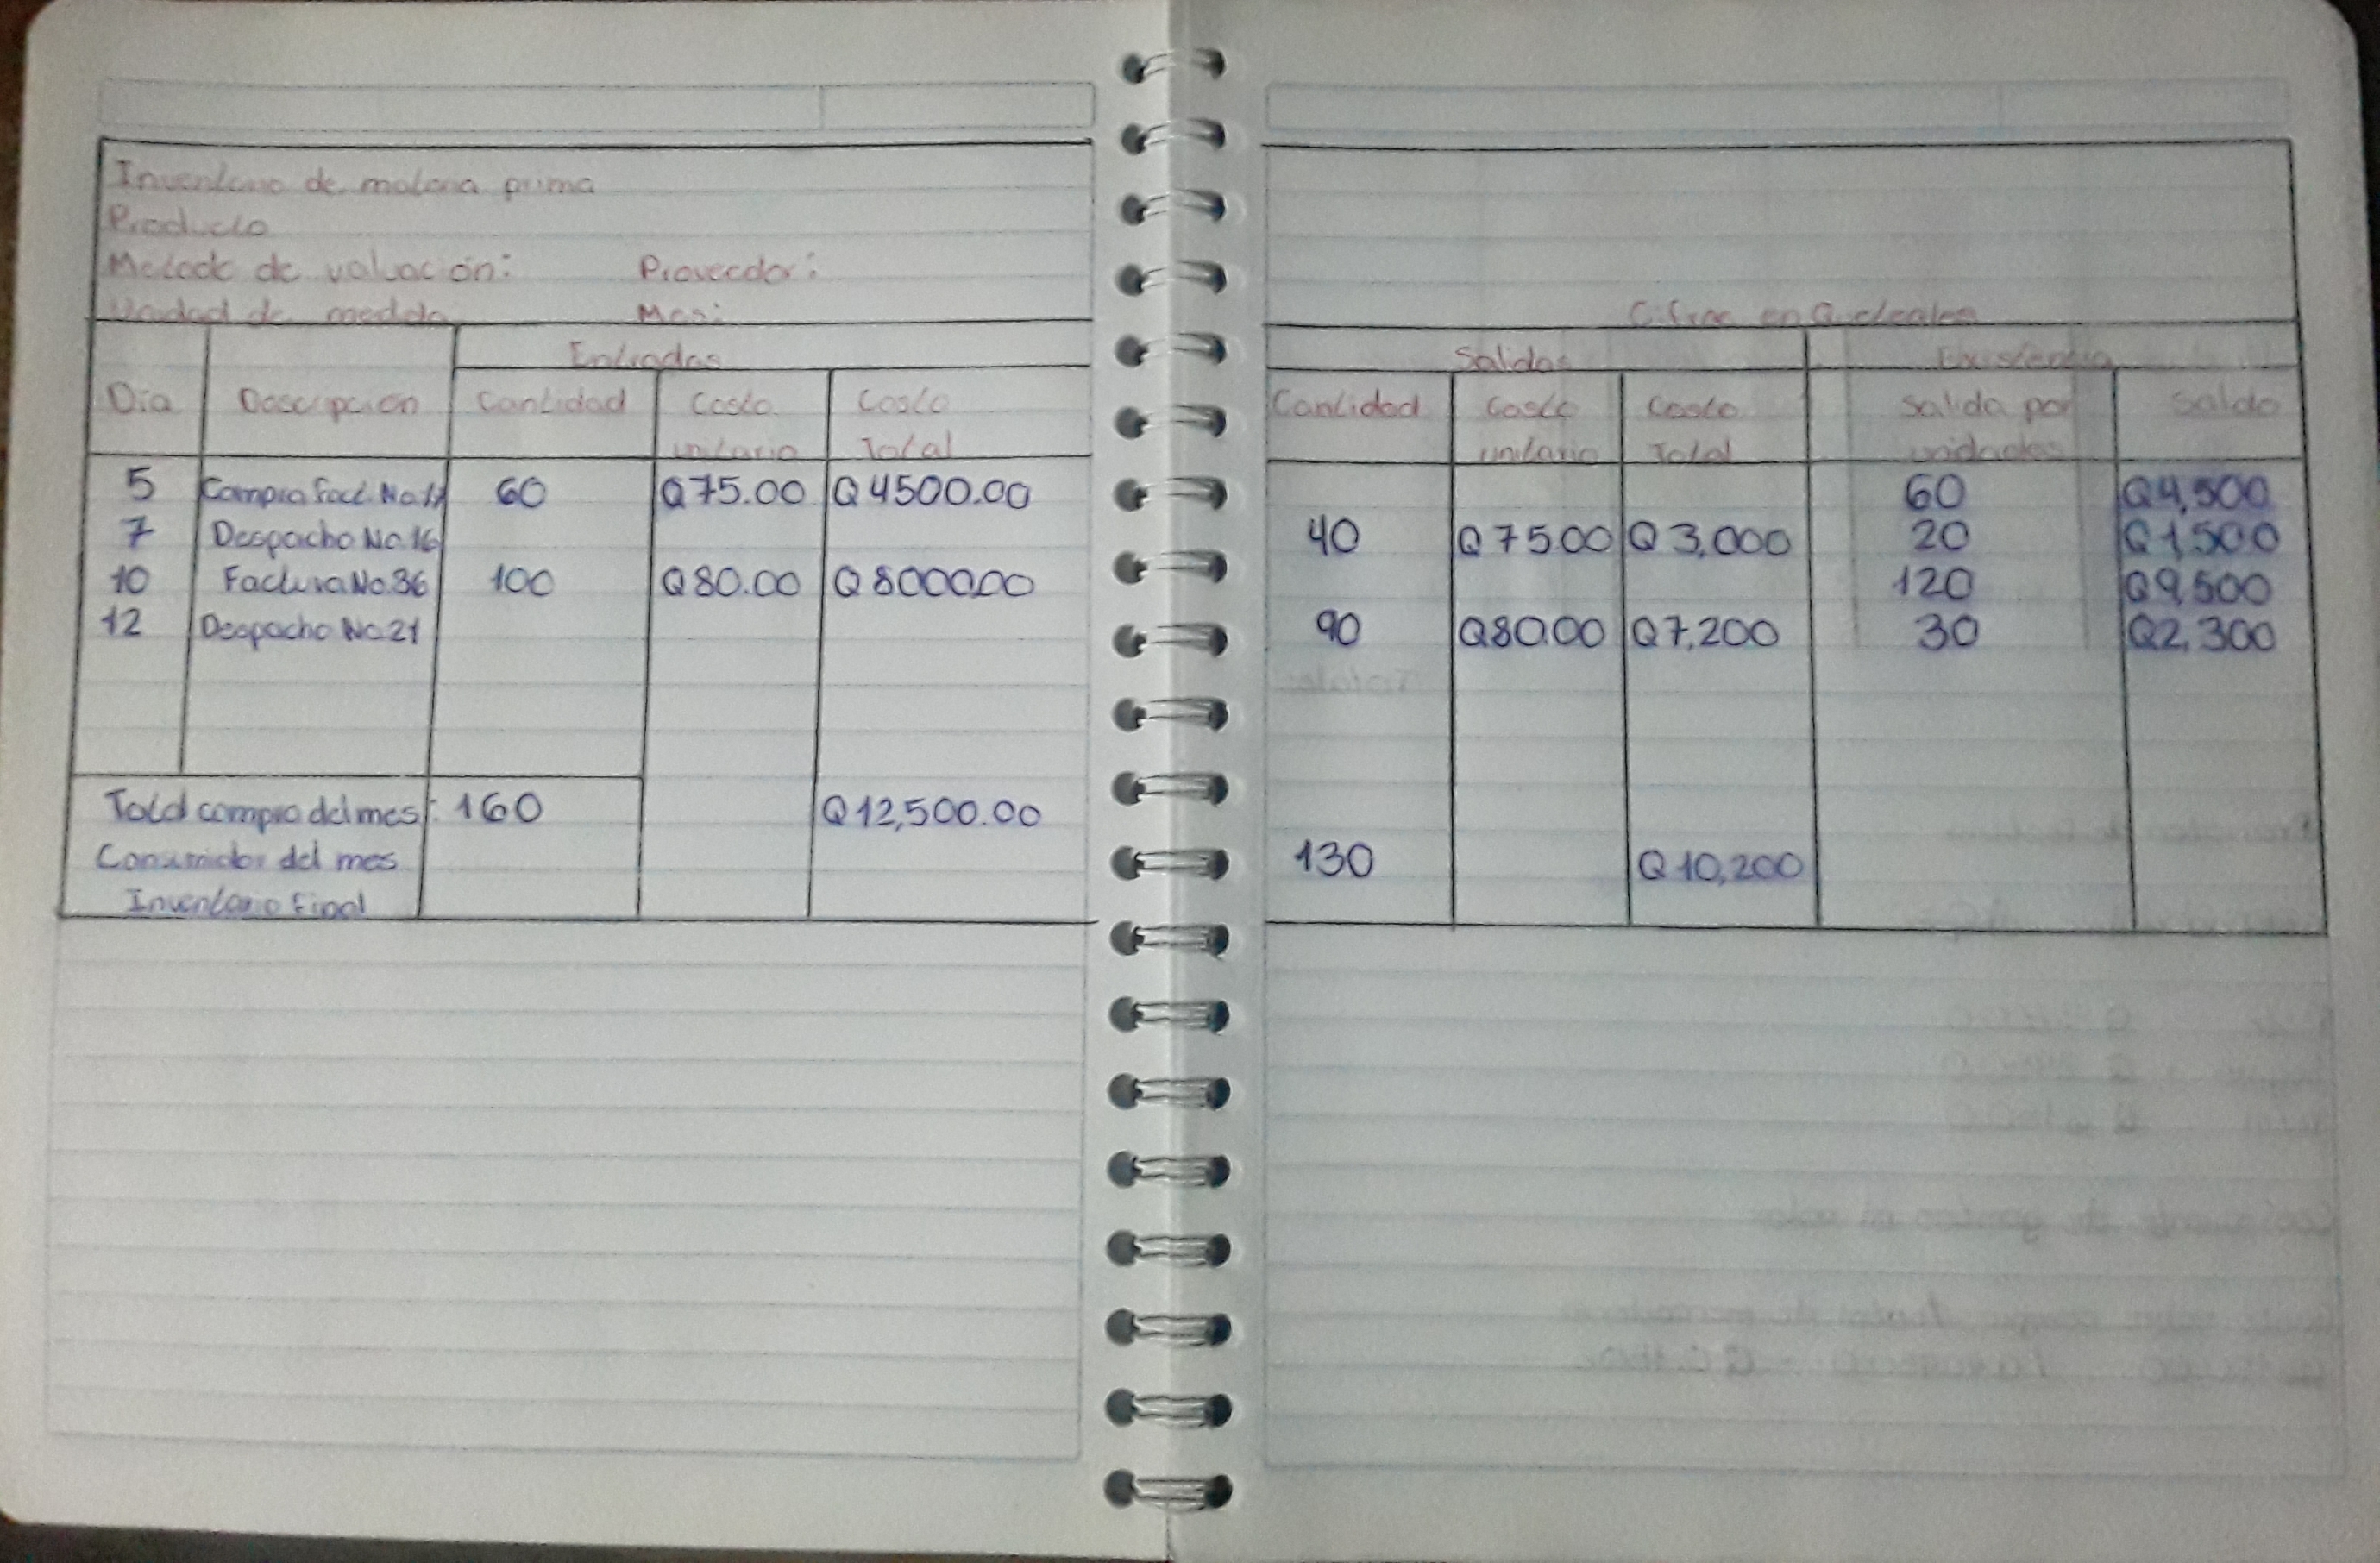 Inventario de materia prima
Producto
Metodo de valuación: Proveedor:
Unidad de medida Mes:
Cifras en Quetzales
Entradas Salidas Existencia
Día Descripción Cantidad Costo unitario Costo Total Cantidad Costo unitario Costo Total Salida por unidades Saldo
5 Compra Fact. No. 60 Q75.00 Q4500.00 60 Q4,500
7 Despacho No.16 40 Q75.00 Q3,000 20 Q1,500
10 Factura No.36 100 Q80.00 Q8000.00 120 Q9,500
12 Despacho No.21 90 Q80.00 Q7,200 30 Q2,300
Total compra del mes: 160 Q12,500.00
Consumidor del mes 130 Q10,200
Inventario Final